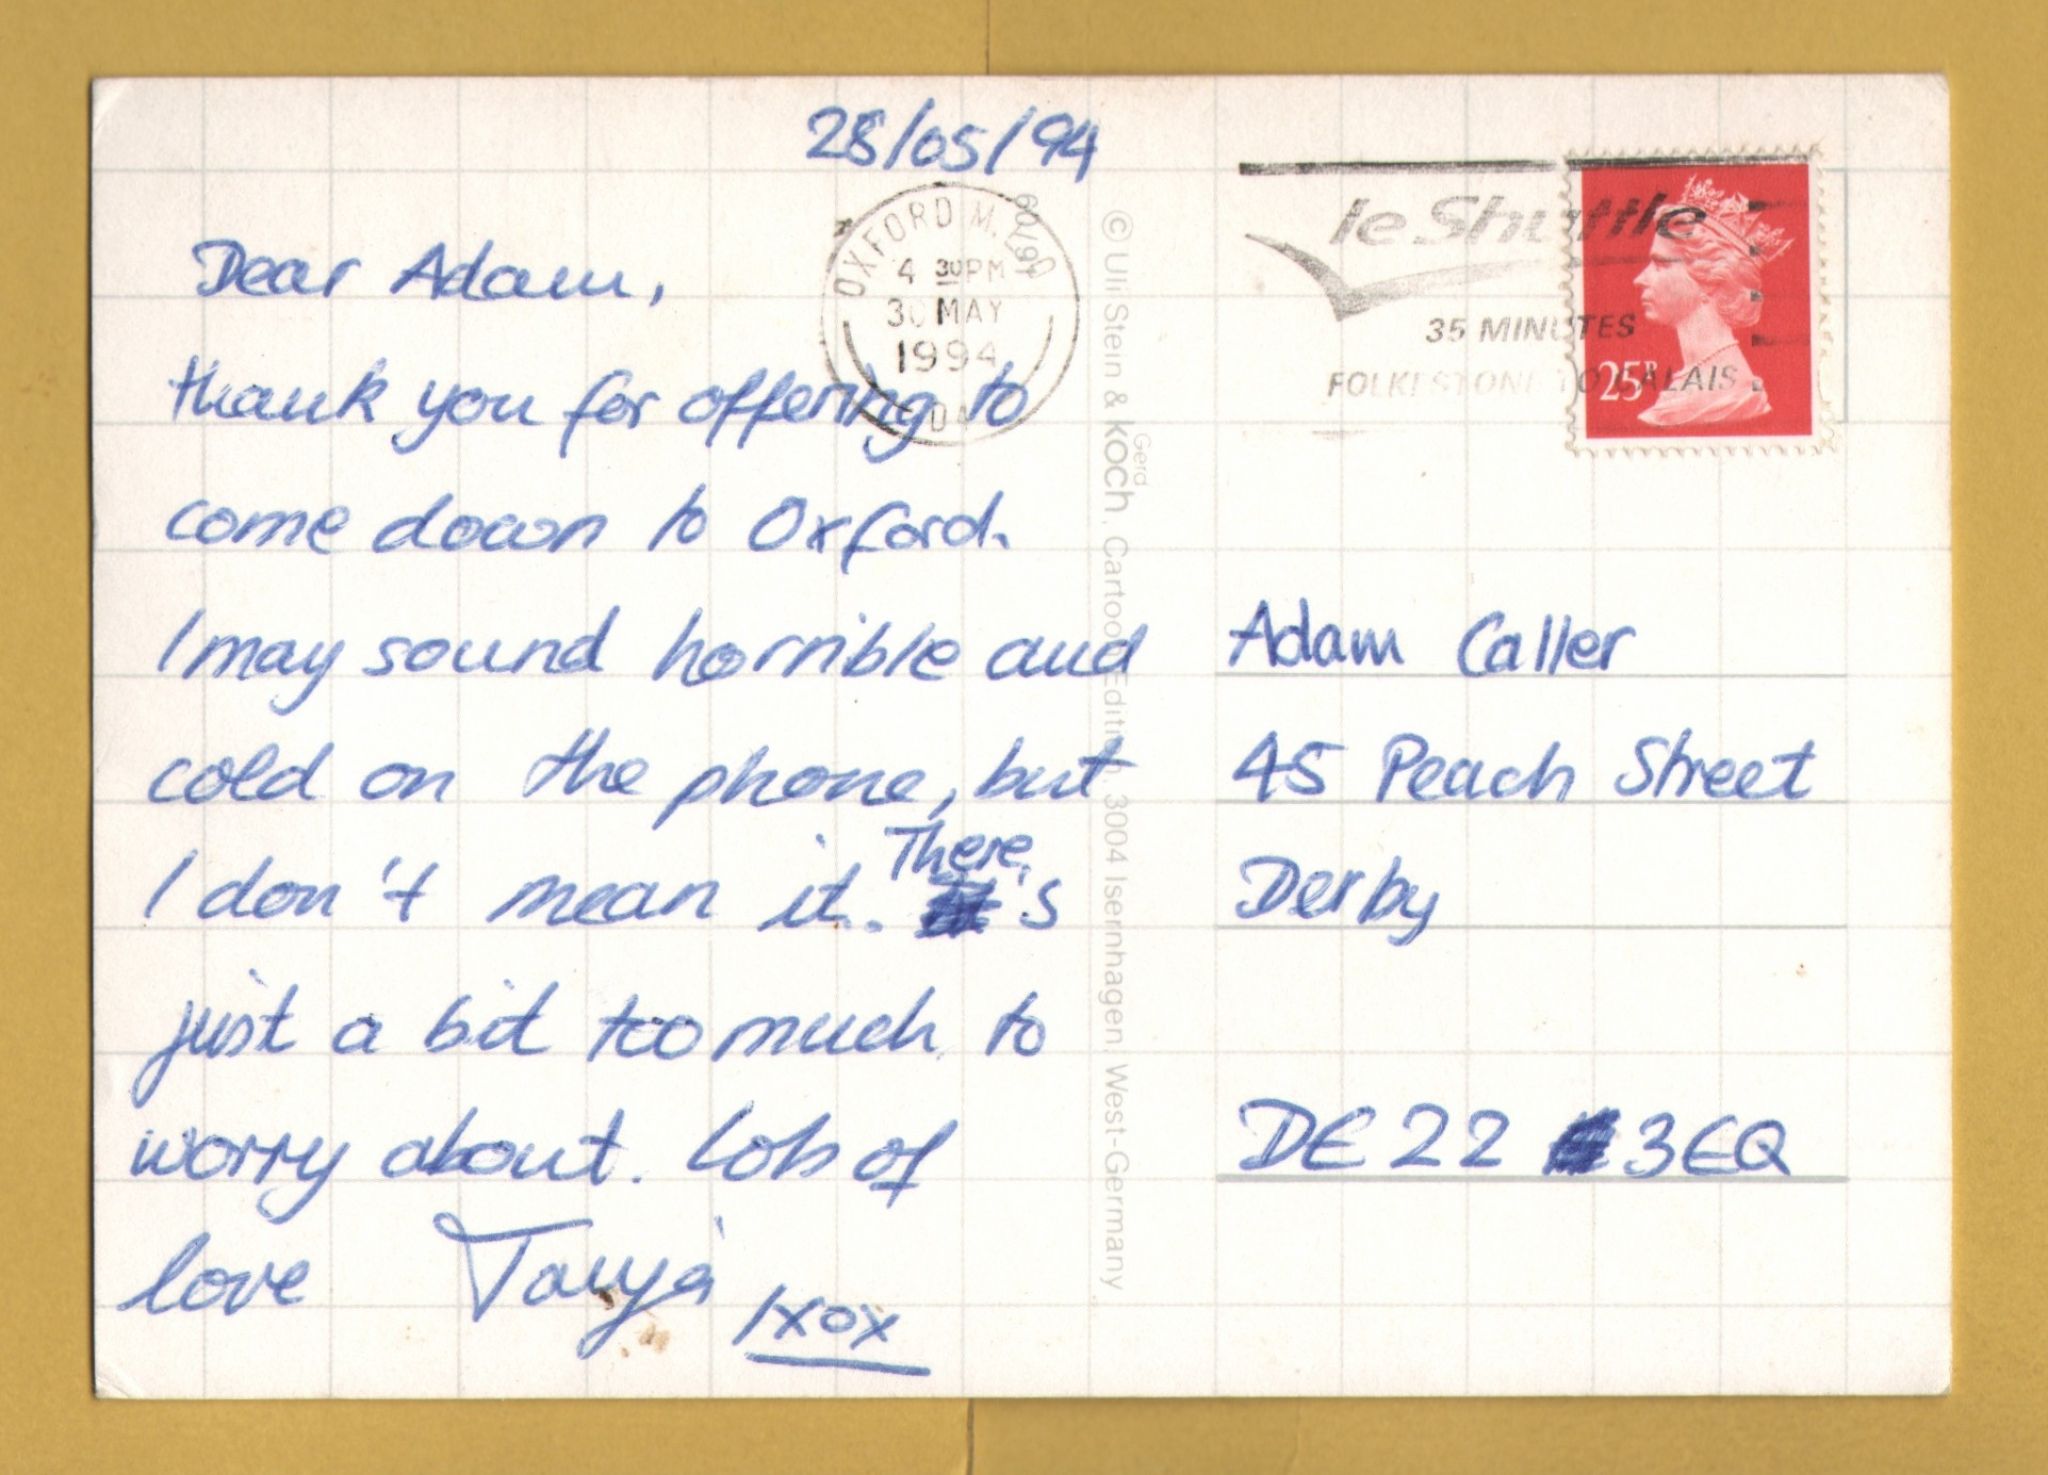 28/05/94
Dear Adam,
thank you for offering to
come down to Oxford.
I may sound horrible and
cold on the phone, but
I don't mean it. There's
just a bit too much to
worry about. Lots of
love Tanja
xox
OXFORD M.
4 30PM
30 MAY
1994
60/91
© Uli Stein & Gerd KOCH, Cartoon Edition, 3004 Isernhagen, West-Germany
le Shuttle
35 MINUTES
FOLKESTONE TO CALAIS
25P
Adam Caller
45 Peach Street
Derby
DE22 3EQ